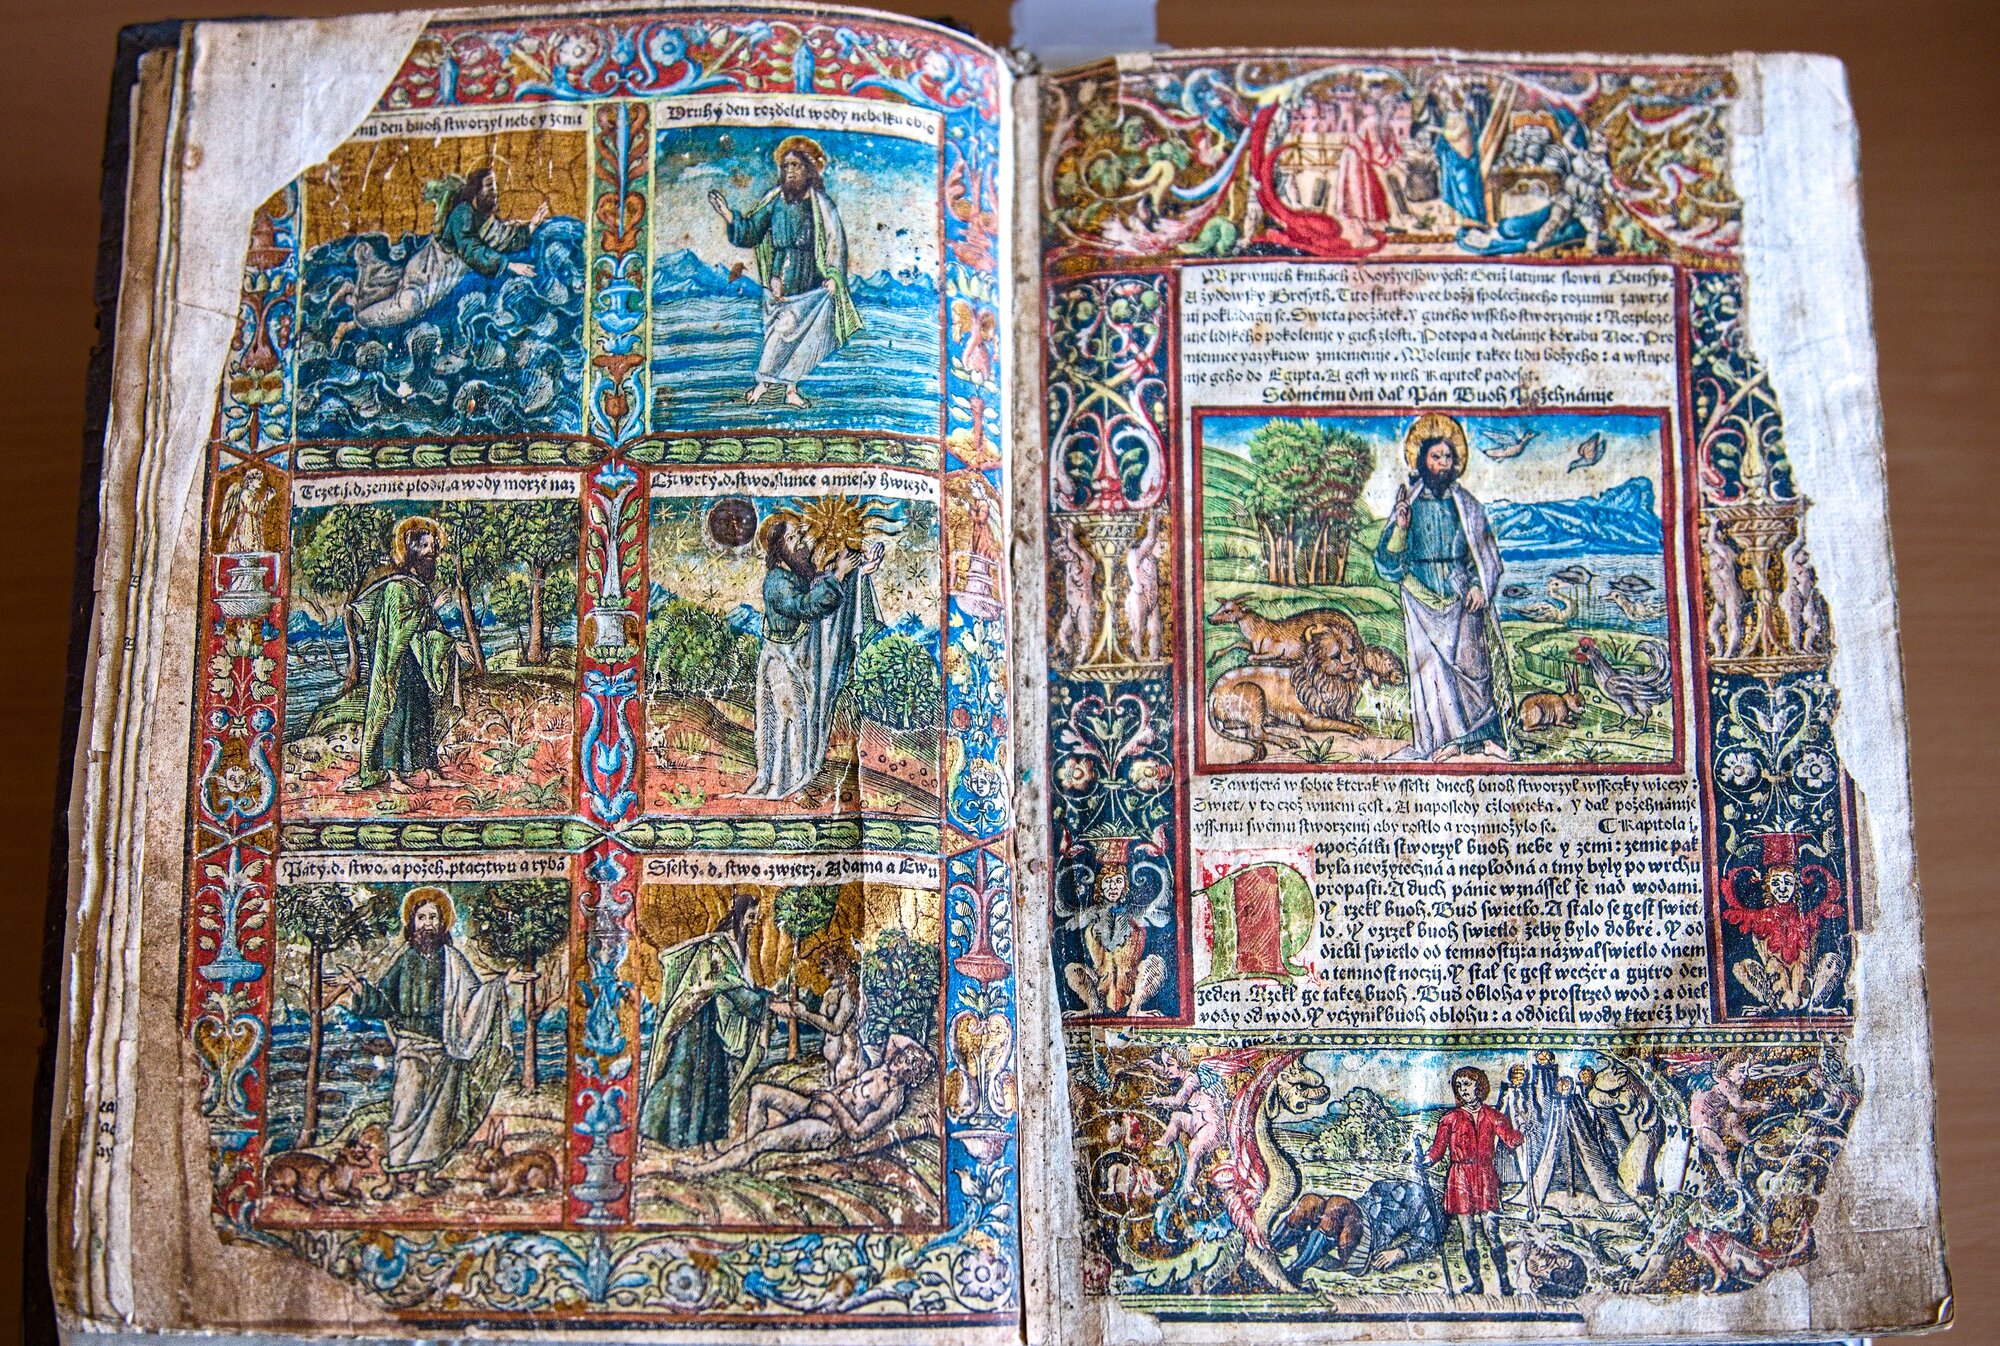 den buoh stworzyl nebe y zemi
Druhy den rozdelil wody nebesku oblo
Trzeti.d.zemie plody.a wody morze naz
Cztwrty.d.stwo.slunce a mies.y hwiezd.
Paty.d.stwo.a pożeh.ptacztwu a rybā
Ssesty.d.stwo.zwierz.Adama a Ewu
W prwnijch knihach Moyżyessowych: genż latinie slowū Genesys
A żydowsky Bresyth. Tito skutkowee bożij spolecznecho rozumu zawrze
nij pokladagij se. Swieta poczátek. Y gineho wsseho stworzenije: Rozploze
nije lidskeho pokolenije y gich zlosti. Potopa a dielánije korabu Noe. Pro
miennee yazykuow zmienienije. Wolenije takee lidu bożyeho: a wstupe
nije geho do Egipta. A gest w nich Kapitol padesat.
Sedmému dni dal Pán Buoh Pożehnánije
Zawijerá w sobie kterak w ssesti dnech buoh stworzyl wsseczky wieczy:
Swiet/ y to czoż w niem gest. A naposledy człowieka. Y dal pożehnánije
wssemu swemu stworzenij aby rostlo a rozmnożylo se. Kapitola j.
N apoczátku stworzyl buoh nebe y zemi: zemie pak
byla neużyteczná a neplodná a tmy byly po wrchu
propasti. A duch pánie wznássel se nad wodami.
Y rzekl buoh. Bud swietlo. A stalo se gest swiet/
lo. Y uzrzel buoh swietlo żeby bylo dobré. Y od
dielil swietlo od temnostij: a názwal swietlo dnem
a temnost nocij. Y stal se gest weczer a gijtro den
geden. Rzekl ge takee buoh. Bud obloha v prostrzed wod: a diel
vody od wod. Y vczynil buoh oblohu: a oddielil wody kterèż byly